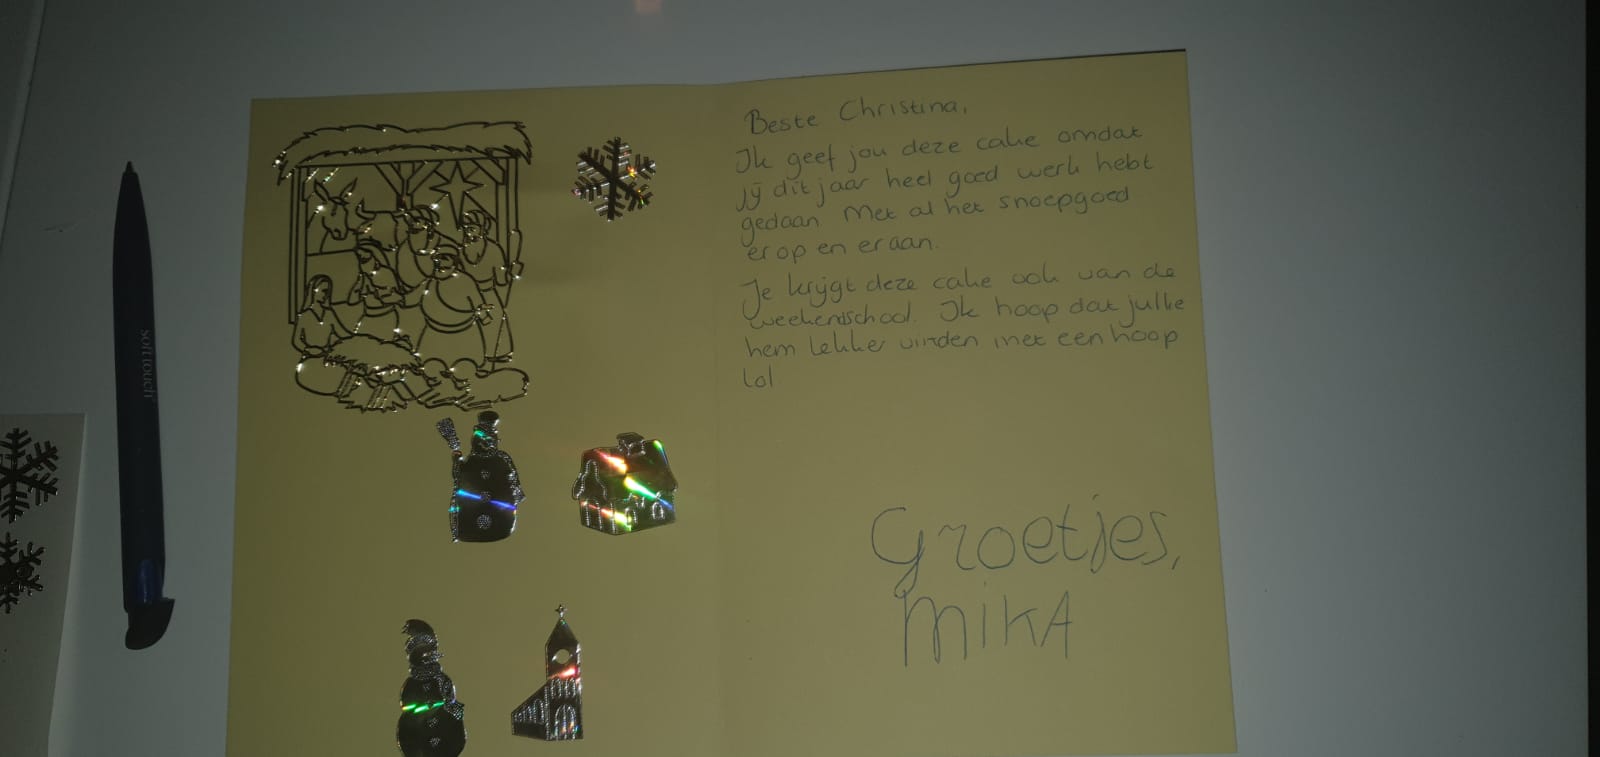 Beste Christina,
Ik geef jou deze cake omdat
jij dit jaar heel goed werk hebt
gedaan. Met al het snoepgoed
erop en eraan.
Je krijgt deze cake ook van de
weekendschool. Ik hoop dat jullie
hem lekker vinden met een hoop
lol
Groetjes,
MIKA
softtouch